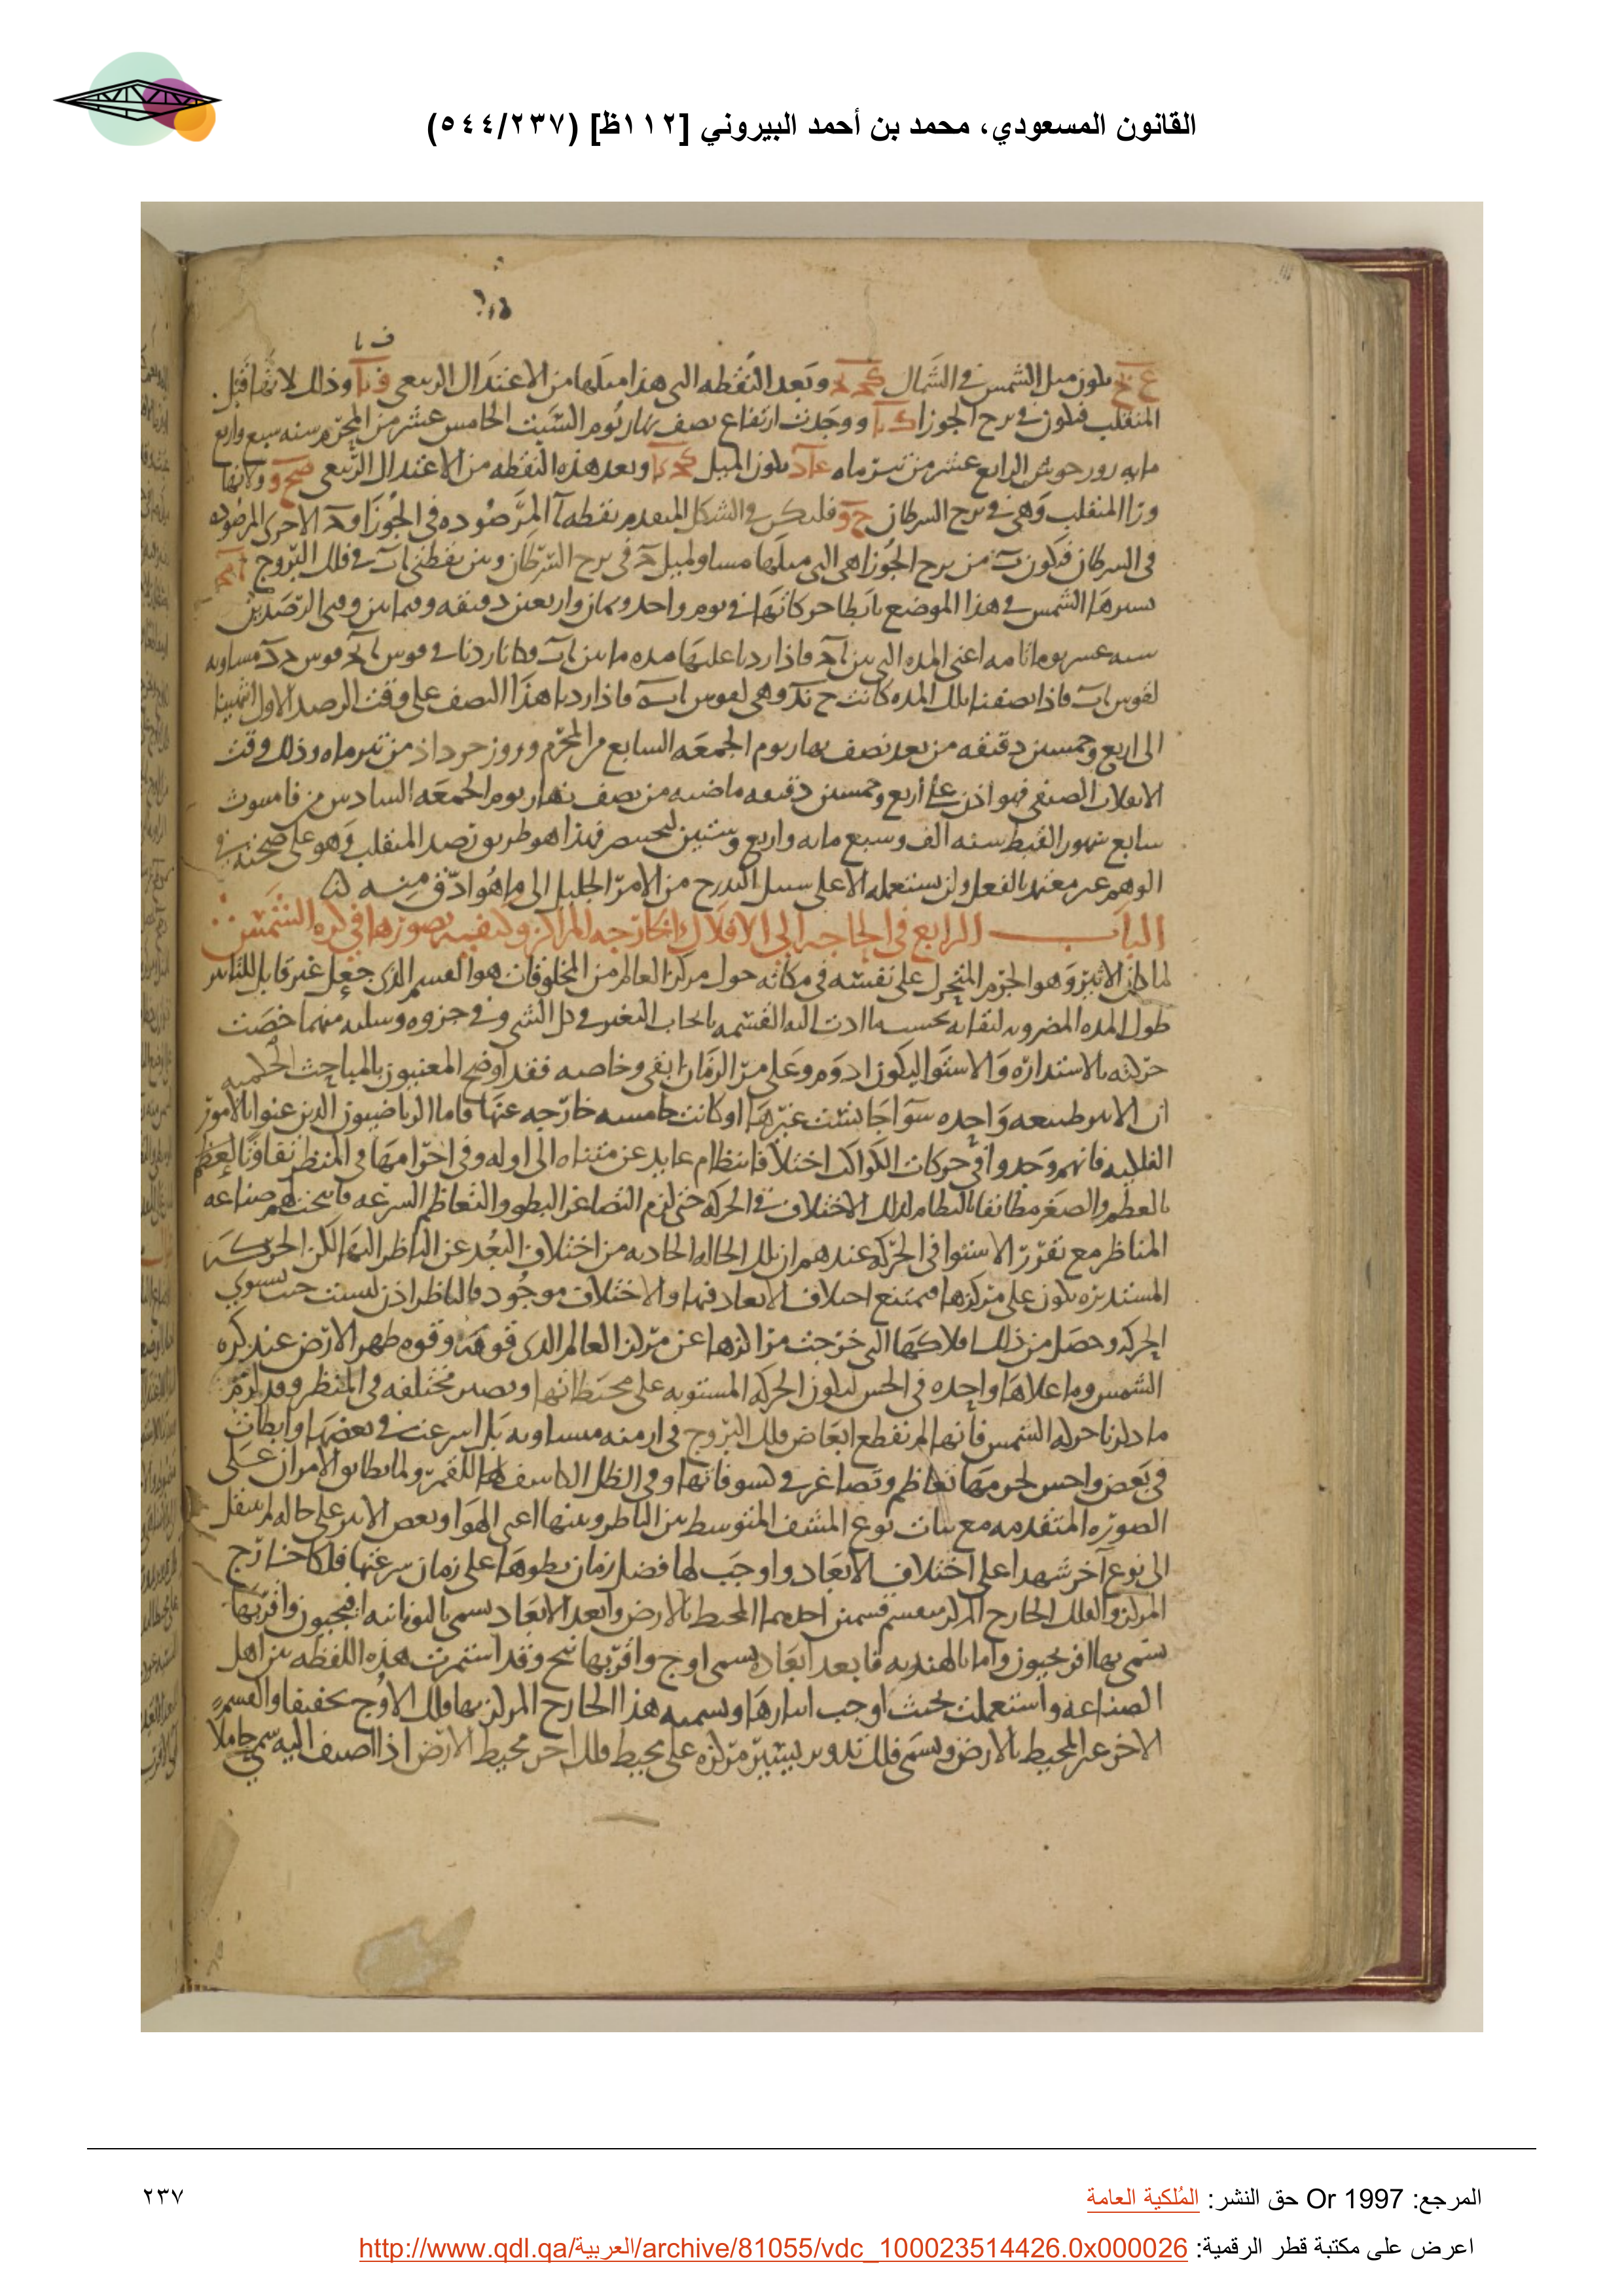 القانون المسعودي، محمد بن أحمد البيروني [١١٢ظ] (٥٤٤/٢٣٧)
ف ىا
عح ىكون ميل الشمس في الشمال كح كد وبعد النقطه التي هذا ميلها من الاعتدال الربيعي ف ىا وذلك لانها قبل
المنقلب فىكون في برج الجوزا ك ىا ووجدت ارتفاع نصف نهار يوم السبت الخامس عشر من المحرم سنه سبع واربع
مايه روز جوش الرابع عشر من تير ماه عا د ىكون الميل وبعد هذه النقطه من الاعتدال الربيعي صح و ولانها
ورا المنقلب وهي في برج السرطان ح و فليكن في الشكل المتقدم نقطه آ المرصوده في الجوزا و الاخرى المرصوده
في السرطان فتكون من برج الجوزا هي التي ميلها مساو لميل في برج السرطان وبين نقطتي اب في فلك البروج
تسيرها الشمس في هذا الموضع بابطا حركاتها في يوم واحد وثمان واربعين دقيقه وفيما بين وقتي الرصدين
سته عشر يوما تامه اعني المده التي بين فاذا زدنا عليها مده ما بين اب وكانا زدنا في قوس قوس مساويه
لقوس اب فاذا نصفنا تلك المده كانت ح ند وهي لقوس فاذا زدنا هذا النصف على وقت الرصد الاول انتهينا
الى اربع وخمسين دقيقه من بعد نصف نهار يوم الجمعه السابع من المحرم وروز خرداذ من تير ماه وذلك وقت
الانقلاب الصيفي فهو اذن على أربع وخمسين دقيقه ماضيه من نصف نهار يوم الجمعه السادس من فامنوث
سابع شهور القبط سنه الف وسبع مايه واربع وستين لبختنصر فهذا هو طريق رصد المنقلب وهو على صحته في
الوهم غير معتمد بالفعل ولن نستعمله الا على سبيل التدرج من الامر الجليل الى ما هو ادق منه
الباب الرابع في الحاجه الى الافلاك الخارجه المراكز وكيفيه تصورها في كره الشمس
لما كان الاثير وهو الجرم المتحرك على نفسه في مكانه حول مركز العالم من المخلوقات هو القسم الذي جعل غير قابل للتاثير
طول المده المضروبه لبقايه بحسب ما ادت اليه القسمه بايجاب التغير في كل الشي وفي جزوه وسلبه منهما خصت
حركته بالاستداره والاستوا ليكون ادوم وعلى مر الزمان ابقى وخاصه فقد اوضح المعنيون بالمباحث الحكميه
ان الاثير طبيعه واحده سوا جانست غيرها او كانت خامسه خارجه عنها فاما الرياضيون الذين عنوا بالامور
الفلكيه فانهم وجدوا في حركات الكواكب اختلافا بنظام عايد عن منتهاه الى اوله وفي اجرامها في المنظر تفاوتا
بالعظم والصغر مطابقا بالنظام لذلك الاختلاف في الحركه حتى لزم التصاغر البطو والتعاظم السرعه فانتحت لهم صناعه
المناظر مع تقرر الاستوا في الحركه عندهم ان تلك الحاله الحادثه من اختلاف البعد عن الناظر اليها لكن الحركه
المستديره تكون على مركزها فيمتنع اختلاف الابعاد فيها والاختلاف موجود فالناظر اذن ليست حيث تستوي
الحركه وحصل من ذلك افلاكها التي خرجت مراكزها عن مركز العالم الذي فوقه وقوه ظهر الارض عند كره
الشمس وما اعلاها واحده في الحس لتكون الحركه المستويه على محيطاتها وتصير مختلفه في المنظر وقد لزم
ما ذكرنا حركه الشمس فانها لم تقطع ابعاض فلك البروج في ازمنه متساويه بل اسرعت في بعضها وابطات
في بعض واحس لجرمها تعاظم وتصاغر في كسوفاتها وفي الظل الكاسف للقمر ولما تطابق الامران على
الصوره المتقدمه مع ثبات نوع المشف المتوسط بين الناظر وبينها اعني الهوا وبعض الاثير على حاله لم ينتقل
الى نوع آخر شهدا على اختلاف الابعاد واوجب لها فضل زمان بطوها على زمان سرعتها فلكا خارج
المركز والفلك الخارج المركز ينقسم قسمين احدهما المحيط بالارض وابعد الابعاد يسمى باليونانيه افيجيون واقربها
سمي بها افريجيون واما بالهنديه فابعد ابعاده يسمى اوج واقربها نيح وقد استمرت هذه اللفظه بين اهل
الصناعه واستعملت بحيث اوجب ايثارها وتسميه هذا الخارج المركز بها فلك الاوج تخفيفا والقسم
الاخر غير المحيط بالارض ويسمى فلك تدوير يسير مركزه على محيط فلك اخر محيط الارض اذا اضيف اليه سمي حاملا
المرجع: Or 1997 حق النشر: المُلكية العامة
٢٣٧
اعرض على مكتبة قطر الرقمية: http://www.qdl.qa/العربية/archive/81055/vdc_100023514426.0x000026